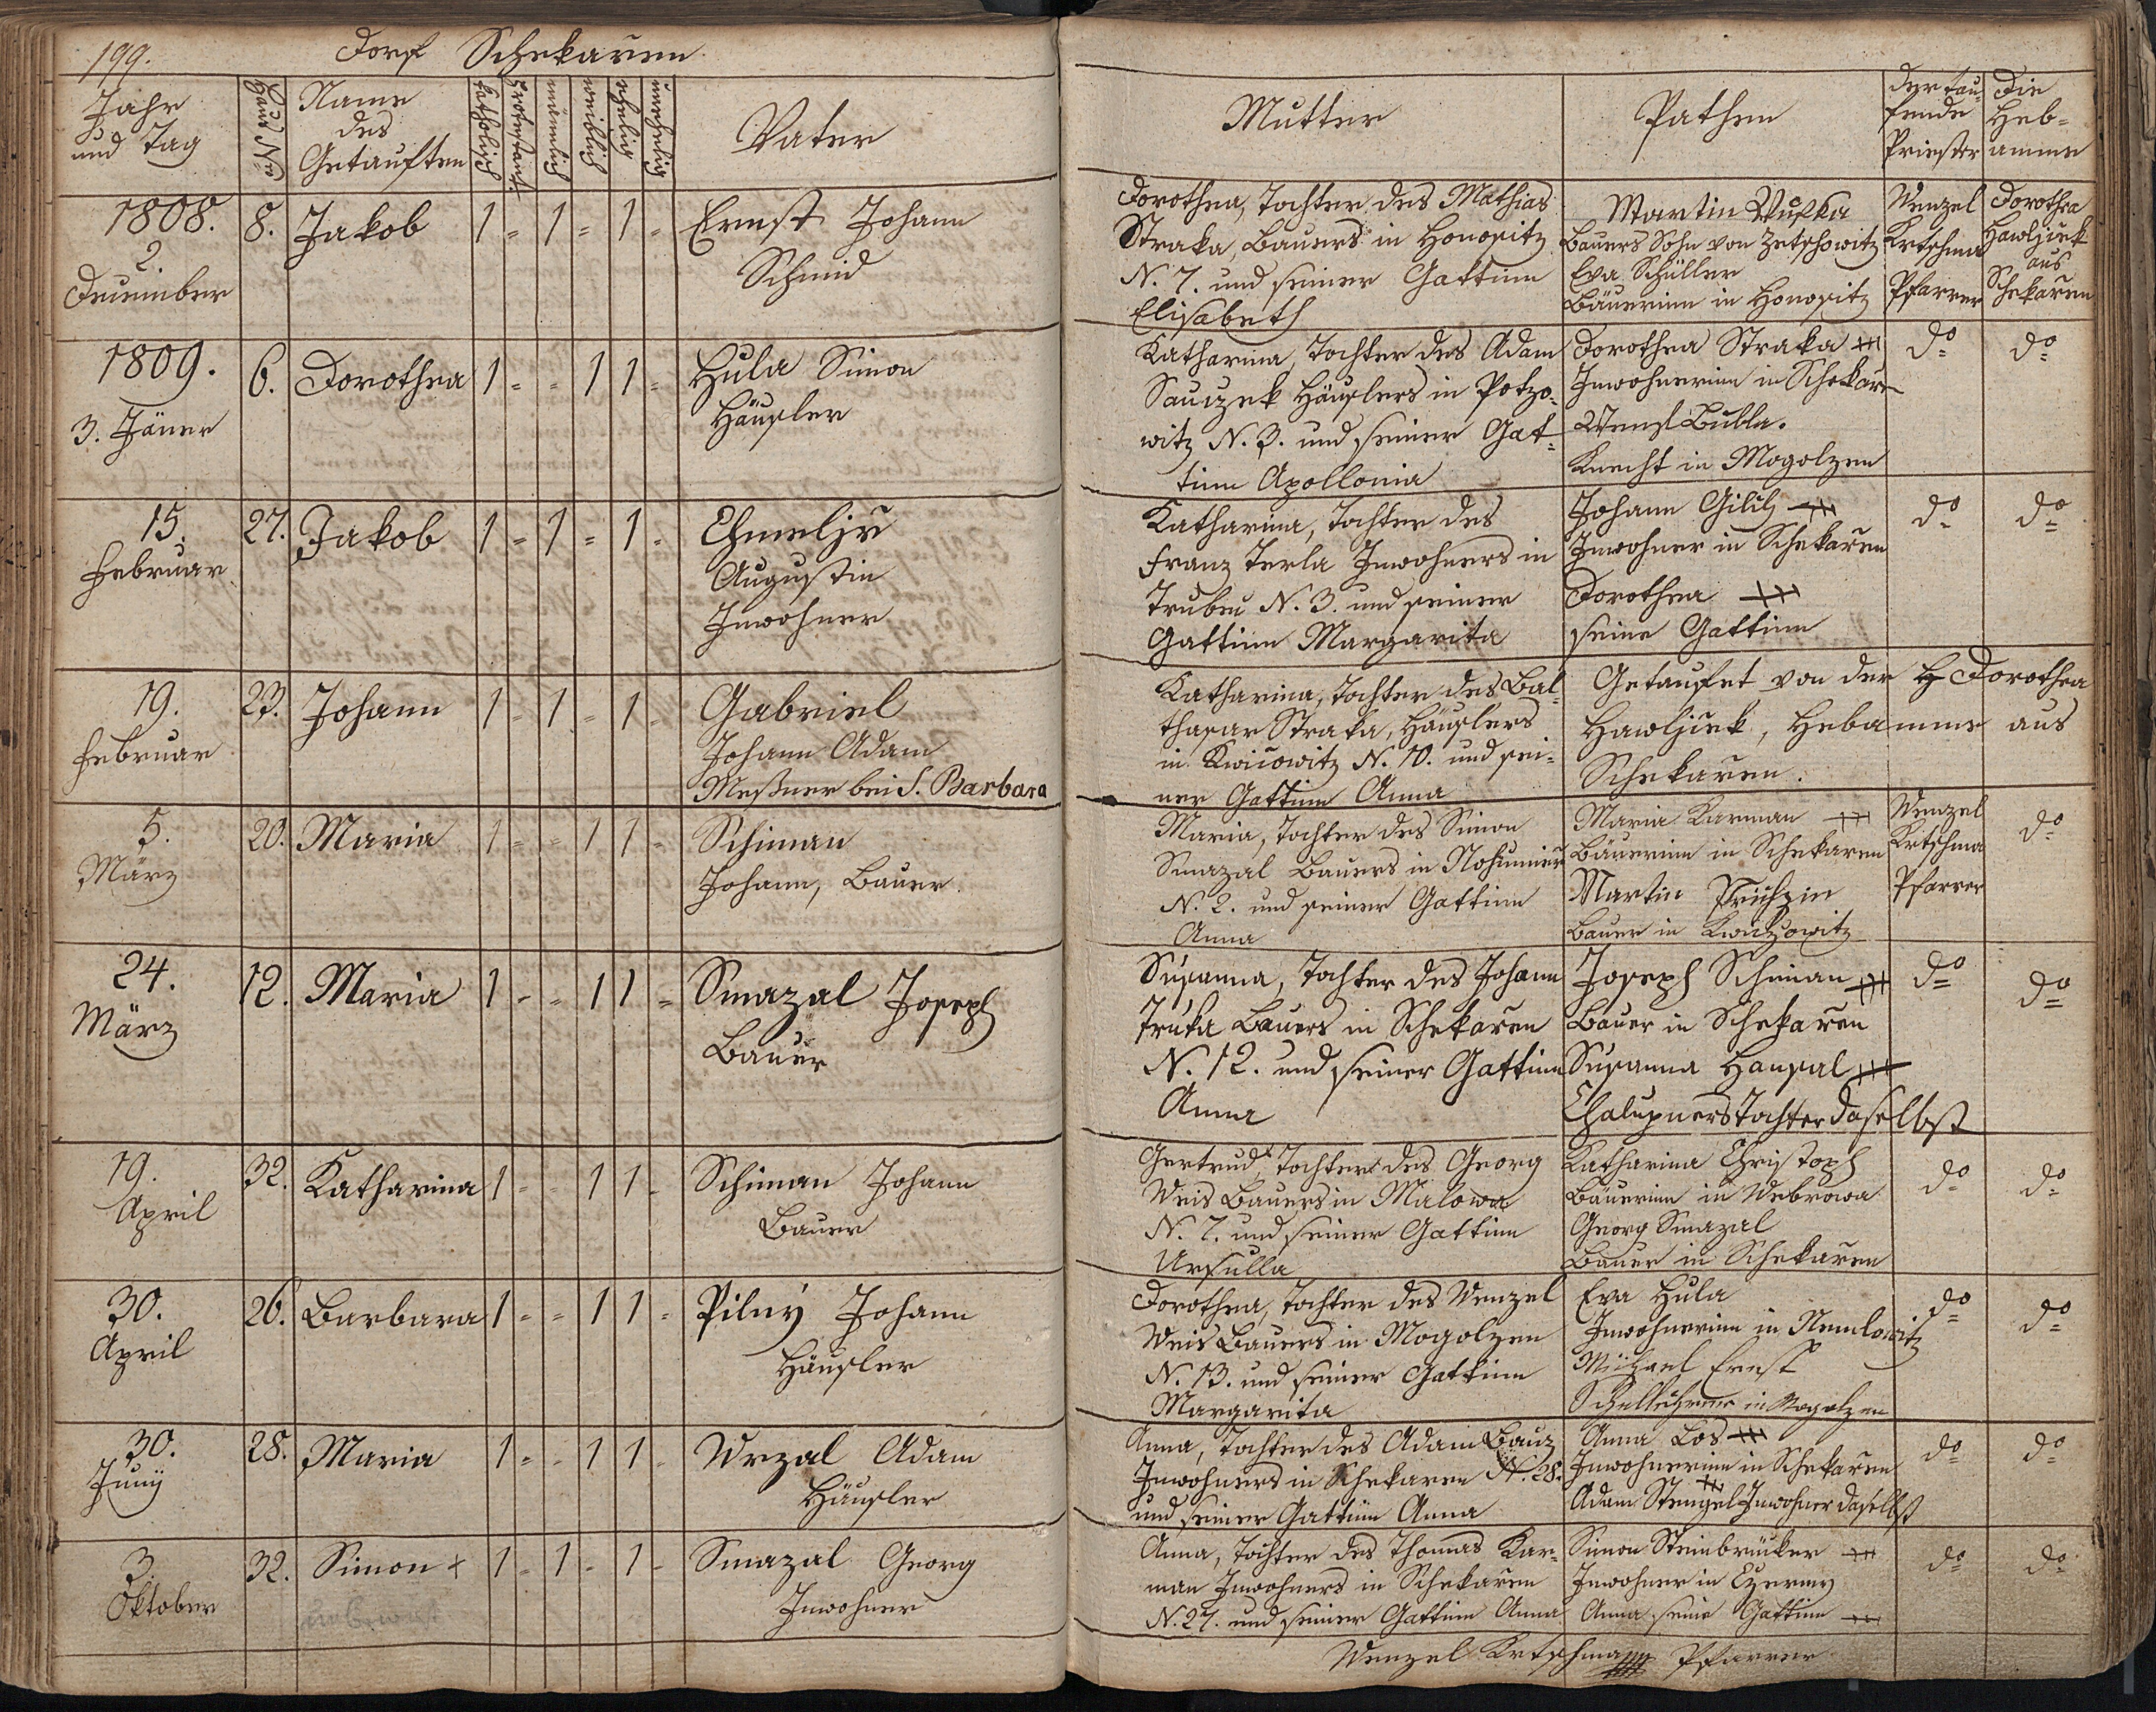 199. Dorf Schekaren
Jahr und Tag
Haus Nro
Name des Getauften
katholisch
protestant.
männlich
weiblich
ehelich
unehelich
Vater
Mutter
Pathen
der taufende Priester
Die Hebamme
1808.
2.
December
8. Jakob 1 - 1 - 1 -
Ernst Johann
Schmid
Dorothea, Tochter des Mathias
Straka, Bauers in Honositz
N. 7. und seiner Gattinn
Elisabeth
Martin
Bauers Sohn von Zetschowitz
Eva Schüller
Bäuerinn in Honositz
Wenzel
Krtschma
Pfarrer
Dorothea
Hawljcek
aus
Schekaren
1809.
3. Jäner
6. Dorothea 1 - - 1 1 -
Hula Simon
Häusler
Katharina, Tochter des Adam
Sauczek Häuslers in Potzo-
witz N. 3. und seiner Gat-
tinn Apollonia
Dorothea Straka +++
Inwohnerinn in Schekar
Wenzl Bubla.
Knecht in Mogolzen
do
do
15.
Februar
27. Jakob 1 - 1 - 1 -
Chmeljr
Augustin
Inwohner
Katharina, Tochter des
Franz Terla Inwohners in
N. 3. und seiner
Gattinn Margarita
Johann +++
Inwohner in Schekaren
Dorothea +++
seine Gattinn
do
do
19.
Februar
23. Johann 1 - 1 - 1 -
Gabriel
Johann Adam
Meßner bei S. Barbara
Katharina, Tochter des Bal-
thasar Straka, Häuslers
in Kwicowitz N. 10. und sei-
ner Gattinn Anna
Getaufet von der Dorothea
Hawljcek, Hebamme aus
Schekaren.
5.
März
20. Maria 1 - - 1 1 -
Schiman
Johann, Bauer
Maria, Tochter des Simon
Smazal Bauers in
N. 2. und seiner Gattinn
Anna
Maria Karman +++
Bäuerinn in Schekaren
Martin
Bauer in
Wenzel
Krtschma
Pfarrer
do
24.
März
12. Maria 1 - - 1 1 -
Smazal Joseph
Bauer
Susanna, Tochter des Johann
Truka Bauers in Schekaren
N. 12. und seiner Gattinn
Anna
Joseph Schiman +++
Bauer in Schekaren
Susanna Hansal +++
Chalupners Tochter daselbst
do
do
19.
April
32. Katharina 1 - - 1 1 -
Schiman Johann
Bauer
Gertrud, Tochter des Georg
Weis Bauers in Malowa
N. 7. und seiner Gattinn
Ursulla
Katharina Christoph
Bäuerinn in Webrowa
Georg Smazal
Bauer in Schekaren
do
do
30.
April
26. Barbara 1 - - 1 1 -
Pilný Johann
Häusler
Dorothea, Tochter des Wenzel
Weis Bauers in Mogolzen
N. 13. und seiner Gattinn
Margarita
Eva Hula
Inwohnerinn in Nemlowitz
Michael Ernst
Schullehrer in Mogolzen
do
do
30.
Junÿ
28. Maria 1 - - 1 1 -
Wrzal Adam
Häusler
Anna, Tochter des Adam Bauz
Inwohners in Schekaren N. 28.
und seiner Gattinn Anna
Anna Los +++
Inwohnerinn in Schekaren
Adam Stengel Inwohner daselbst
do
do
3.
Oktober
32. Simon + 1 - 1 - 1 -
Smazal Georg
Inwohner
Anna, Tochter des Thomas Kar-
man Inwohners in Schekaren
N. 27. und seiner Gattinn Anna
Simon Steinbrücker +++
Inwohner in
Anna seine Gattinn +++
do
do
Wenzel Krtschma Pfarrer